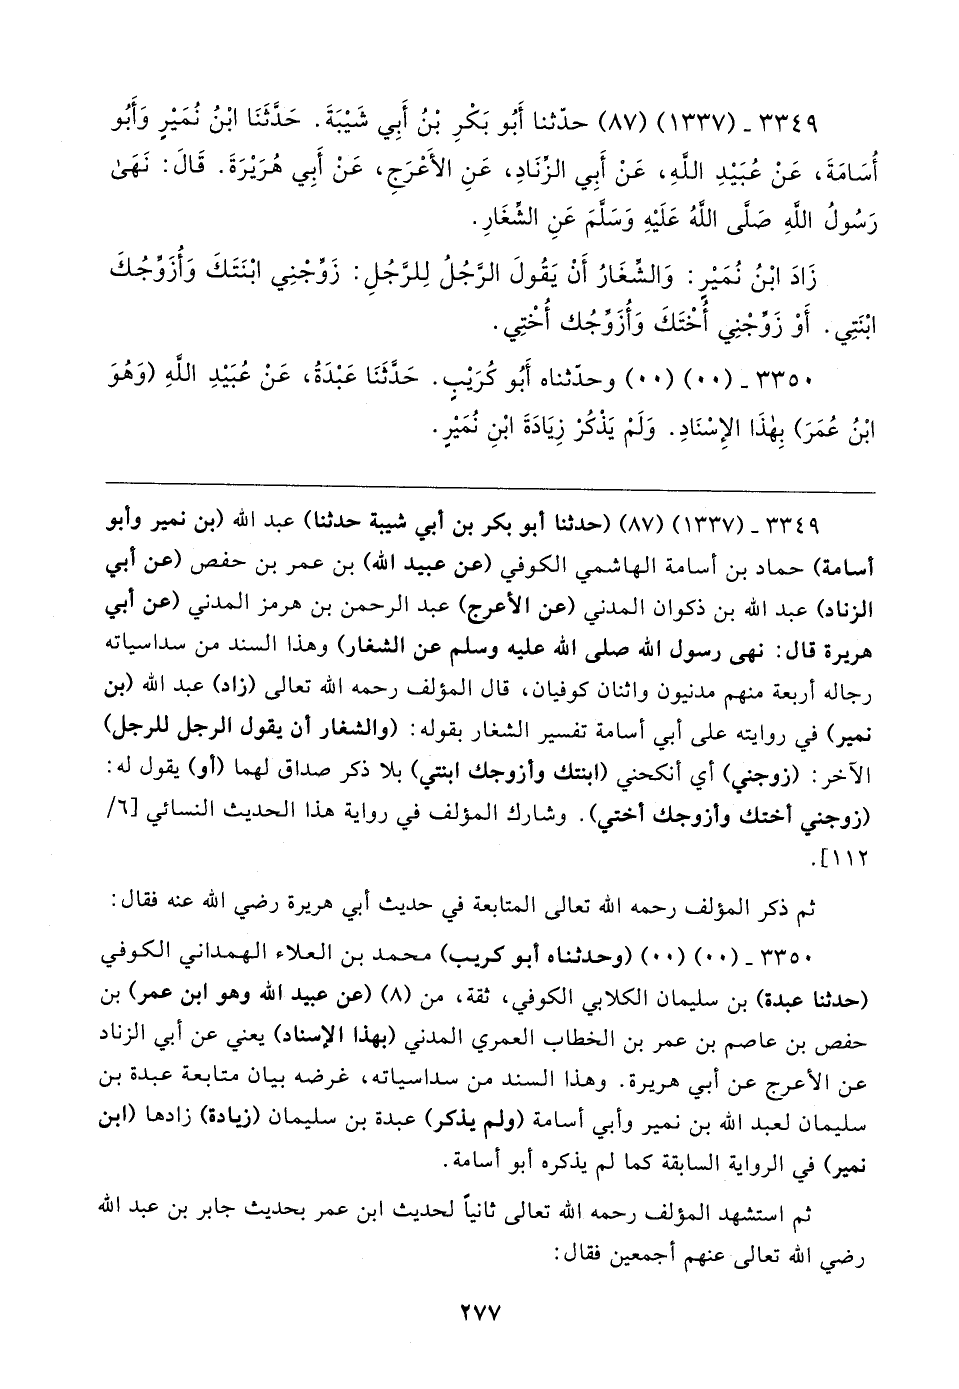 ٣٣٤٩ ـ (١٣٣٧) (٨٧) حدّثنا أَبُو بَكْرِ بْنُ أَبِي شَيْبَةَ. حَدَّثَنَا ابْنُ نُمَيْرٍ وَأَبُو
أُسَامَةَ، عَنْ عُبَيْدِ اللَّهِ، عَنْ أَبِي الزِّنَادِ، عَنِ الأَعْرَجِ، عَنْ أَبِي هُرَيْرَةَ. قَالَ: نَهَىٰ
رَسُولُ اللَّهِ صَلَّى اللَّهُ عَلَيْهِ وَسَلَّمَ عَنِ الشِّغَارِ.
زَادَ ابْنُ نُمَيْرٍ: وَالشِّغَارُ أَنْ يَقُولَ الرَّجُلُ لِلرَّجُلِ: زَوِّجْنِي ابْنَتَكَ وَأُزَوِّجُكَ
ابْنَتِي. أَوْ زَوِّجْنِي أُخْتَكَ وَأُزَوِّجُكَ أُخْتِي.
٣٣٥٠ ـ (٠٠) (٠٠) وحدّثناه أَبُو كُرَيْبٍ. حَدَّثَنَا عَبْدَةُ، عَنْ عُبَيْدِ اللَّهِ (وَهُوَ
ابْنُ عُمَرَ) بِهٰذَا الإِسْنَادِ. وَلَمْ يَذْكُرْ زِيَادَةَ ابْنِ نُمَيْرٍ.
٣٣٤٩ ـ (١٣٣٧) (٨٧) (حدثنا أبو بكر بن أبي شيبة حدثنا) عبد الله (بن نمير وأبو
أسامة) حماد بن أسامة الهاشمي الكوفي (عن عبيد الله) بن عمر بن حفص (عن أبي
الزناد) عبد الله بن ذكوان المدني (عن الأعرج) عبد الرحمن بن هرمز المدني (عن أبي
هريرة قال: نهى رسول الله صلى الله عليه وسلم عن الشغار) وهذا السند من سداسياته
رجاله أربعة منهم مدنيون واثنان كوفيان، قال المؤلف رحمه الله تعالى (زاد) عبد الله (بن
نمير) في روايته على أبي أسامة تفسير الشغار بقوله: (والشغار أن يقول الرجل للرجل)
الآخر: (زوجني) أي أنكحني (ابنتك وأزوجك ابنتي) بلا ذكر صداق لهما (أو) يقول له:
(زوجني أختك وأزوجك أختي). وشارك المؤلف في رواية هذا الحديث النسائي [٦/
١١٢].
ثم ذكر المؤلف رحمه الله تعالى المتابعة في حديث أبي هريرة رضي الله عنه فقال:
٣٣٥٠ ـ (٠٠) (٠٠) (وحدثناه أبو كريب) محمد بن العلاء الهمداني الكوفي
(حدثنا عبدة) بن سليمان الكلابي الكوفي، ثقة، من (٨) (عن عبيد الله وهو ابن عمر) بن
حفص بن عاصم بن عمر بن الخطاب العمري المدني (بهذا الإسناد) يعني عن أبي الزناد
عن الأعرج عن أبي هريرة. وهذا السند من سداسياته، غرضه بيان متابعة عبدة بن
سليمان لعبد الله بن نمير وأبي أسامة (ولم يذكر) عبدة بن سليمان (زيادة) زادها (ابن
نمير) في الرواية السابقة كما لم يذكره أبو أسامة.
ثم استشهد المؤلف رحمه الله تعالى ثانياً لحديث ابن عمر بحديث جابر بن عبد الله
رضي الله تعالى عنهم أجمعين فقال:
٢٧٧